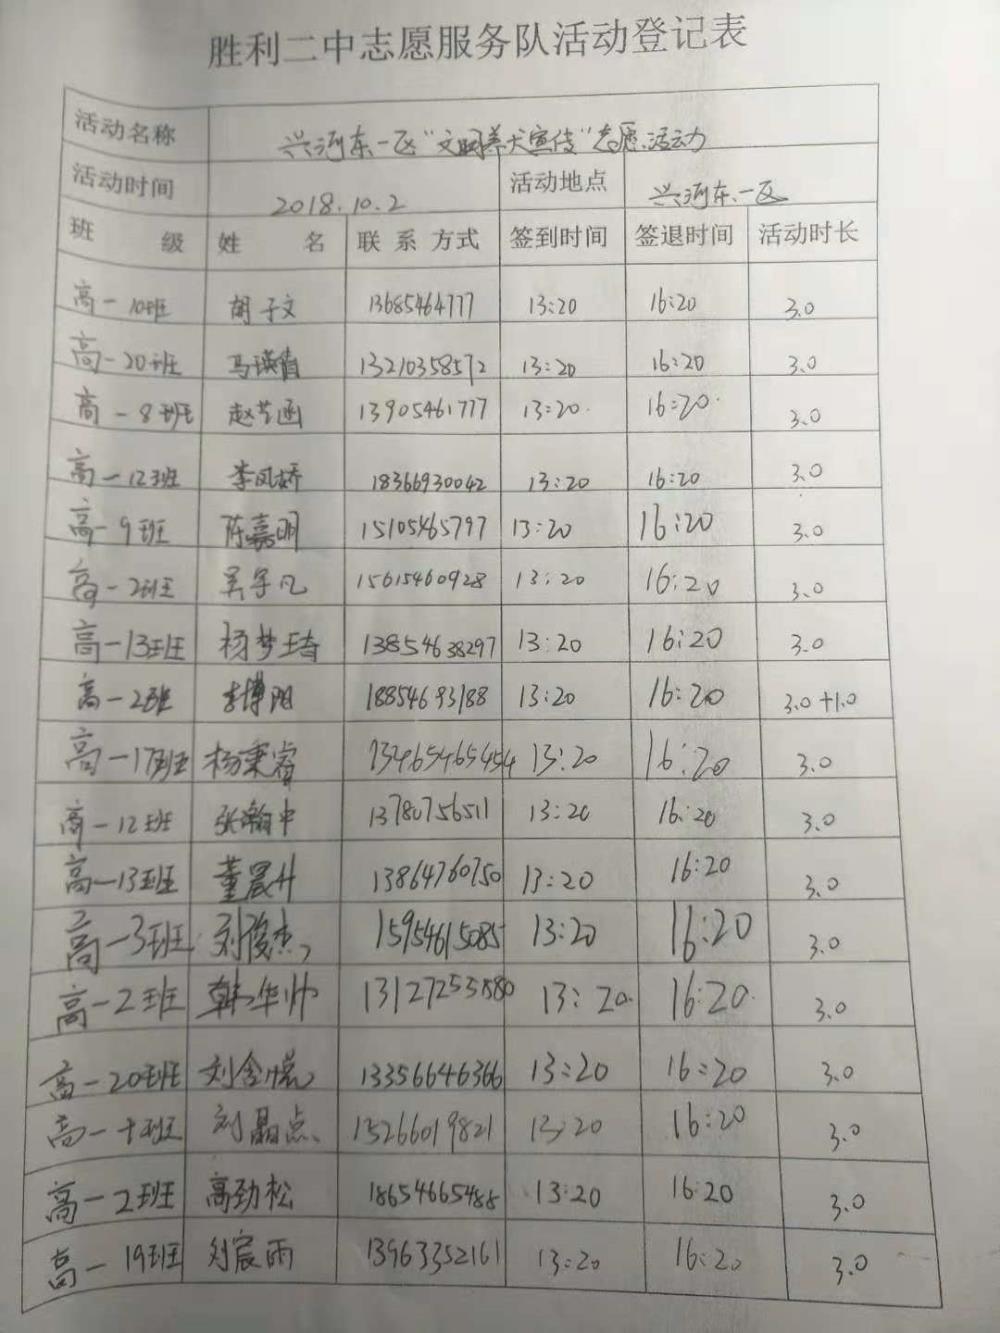 胜利二中志愿服务队活动登记表
活动名称 兴河东一区“文明养犬宣传”志愿活动
活动时间 2018.10.2 活动地点 兴河东一区
班 级 姓 名 联系方式 签到时间 签退时间 活动时长
高一10班 胡子文 13685464777 13:20 16:20 3.0
高一20班 马瑛 13210358572 13:20 16:20 3.0
高一8班 赵艺函 13905461777 13:20 16:20 3.0
高一12班 李凤娇 18366930042 13:20 16:20 3.0
高一9班 陈嘉明 15105465797 13:20 16:20 3.0
高一2班 吴宇凡 15615460928 13:20 16:20 3.0
高一13班 杨梦琦 13854638297 13:20 16:20 3.0
高一2班 李博阳 18854693188 13:20 16:20 3.0+1.0
高一17班 杨秉睿 13465465454 13:20 16:20 3.0
高一12班 张瀚中 13780756511 13:20 16:20 3.0
高一13班 董晨升 13864760750 13:20 16:20 3.0
高一3班 刘俊杰 15954615085 13:20 16:20 3.0
高一2班 韩华帅 13:20 16:20 3.0
高一20班 刘 13356646366 13:20 16:20 3.0
高一十班 刘晶点 15266019821 13:20 16:20 3.0
高一2班 高劲松 18654665488 13:20 16:20 3.0
高一19班 刘宸雨 13963352161 13:20 16:20 3.0